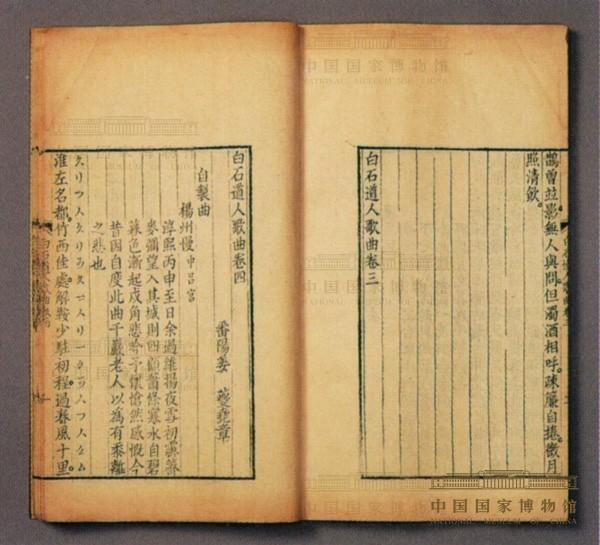 鵲曾並影無人與問但濁酒相呼。疎簾自捲。微月
照清飲。
白石道人歌曲卷三
白石道人歌曲卷四
番陽姜夔堯章
自製曲
楊州慢中呂宮
淳熙丙申至日余過維揚夜雪初霽薺
麥彌望入其城則四顧蕭條寒水自碧
暮色漸起戍角悲吟予懷愴然感慨今
昔因自度此曲千巖老人以為有黍離
之悲也
淮左名都。竹西佳處。解鞍少駐初程。過春風十里。
中国国家博物馆
NATIONAL MUSEUM OF CHINA
中国国家博物馆
NATIONAL MUSEUM OF CHINA